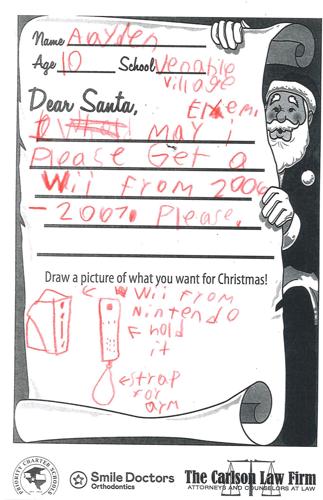 Name Aayden
Age 10 School Venable
Village
Elem.
Dear Santa,
May i
Please Get a
Wii From 2006
- 2007. Please.
Draw a picture of what you want for Christmas!
Wii From
Nintendo
hold
it
strap
For
arm
PRIORITY CHARTER SCHOOLS
Smile Doctors
Orthodontics
The Carlson Law Firm
ATTORNEYS AND COUNSELORS AT LAW